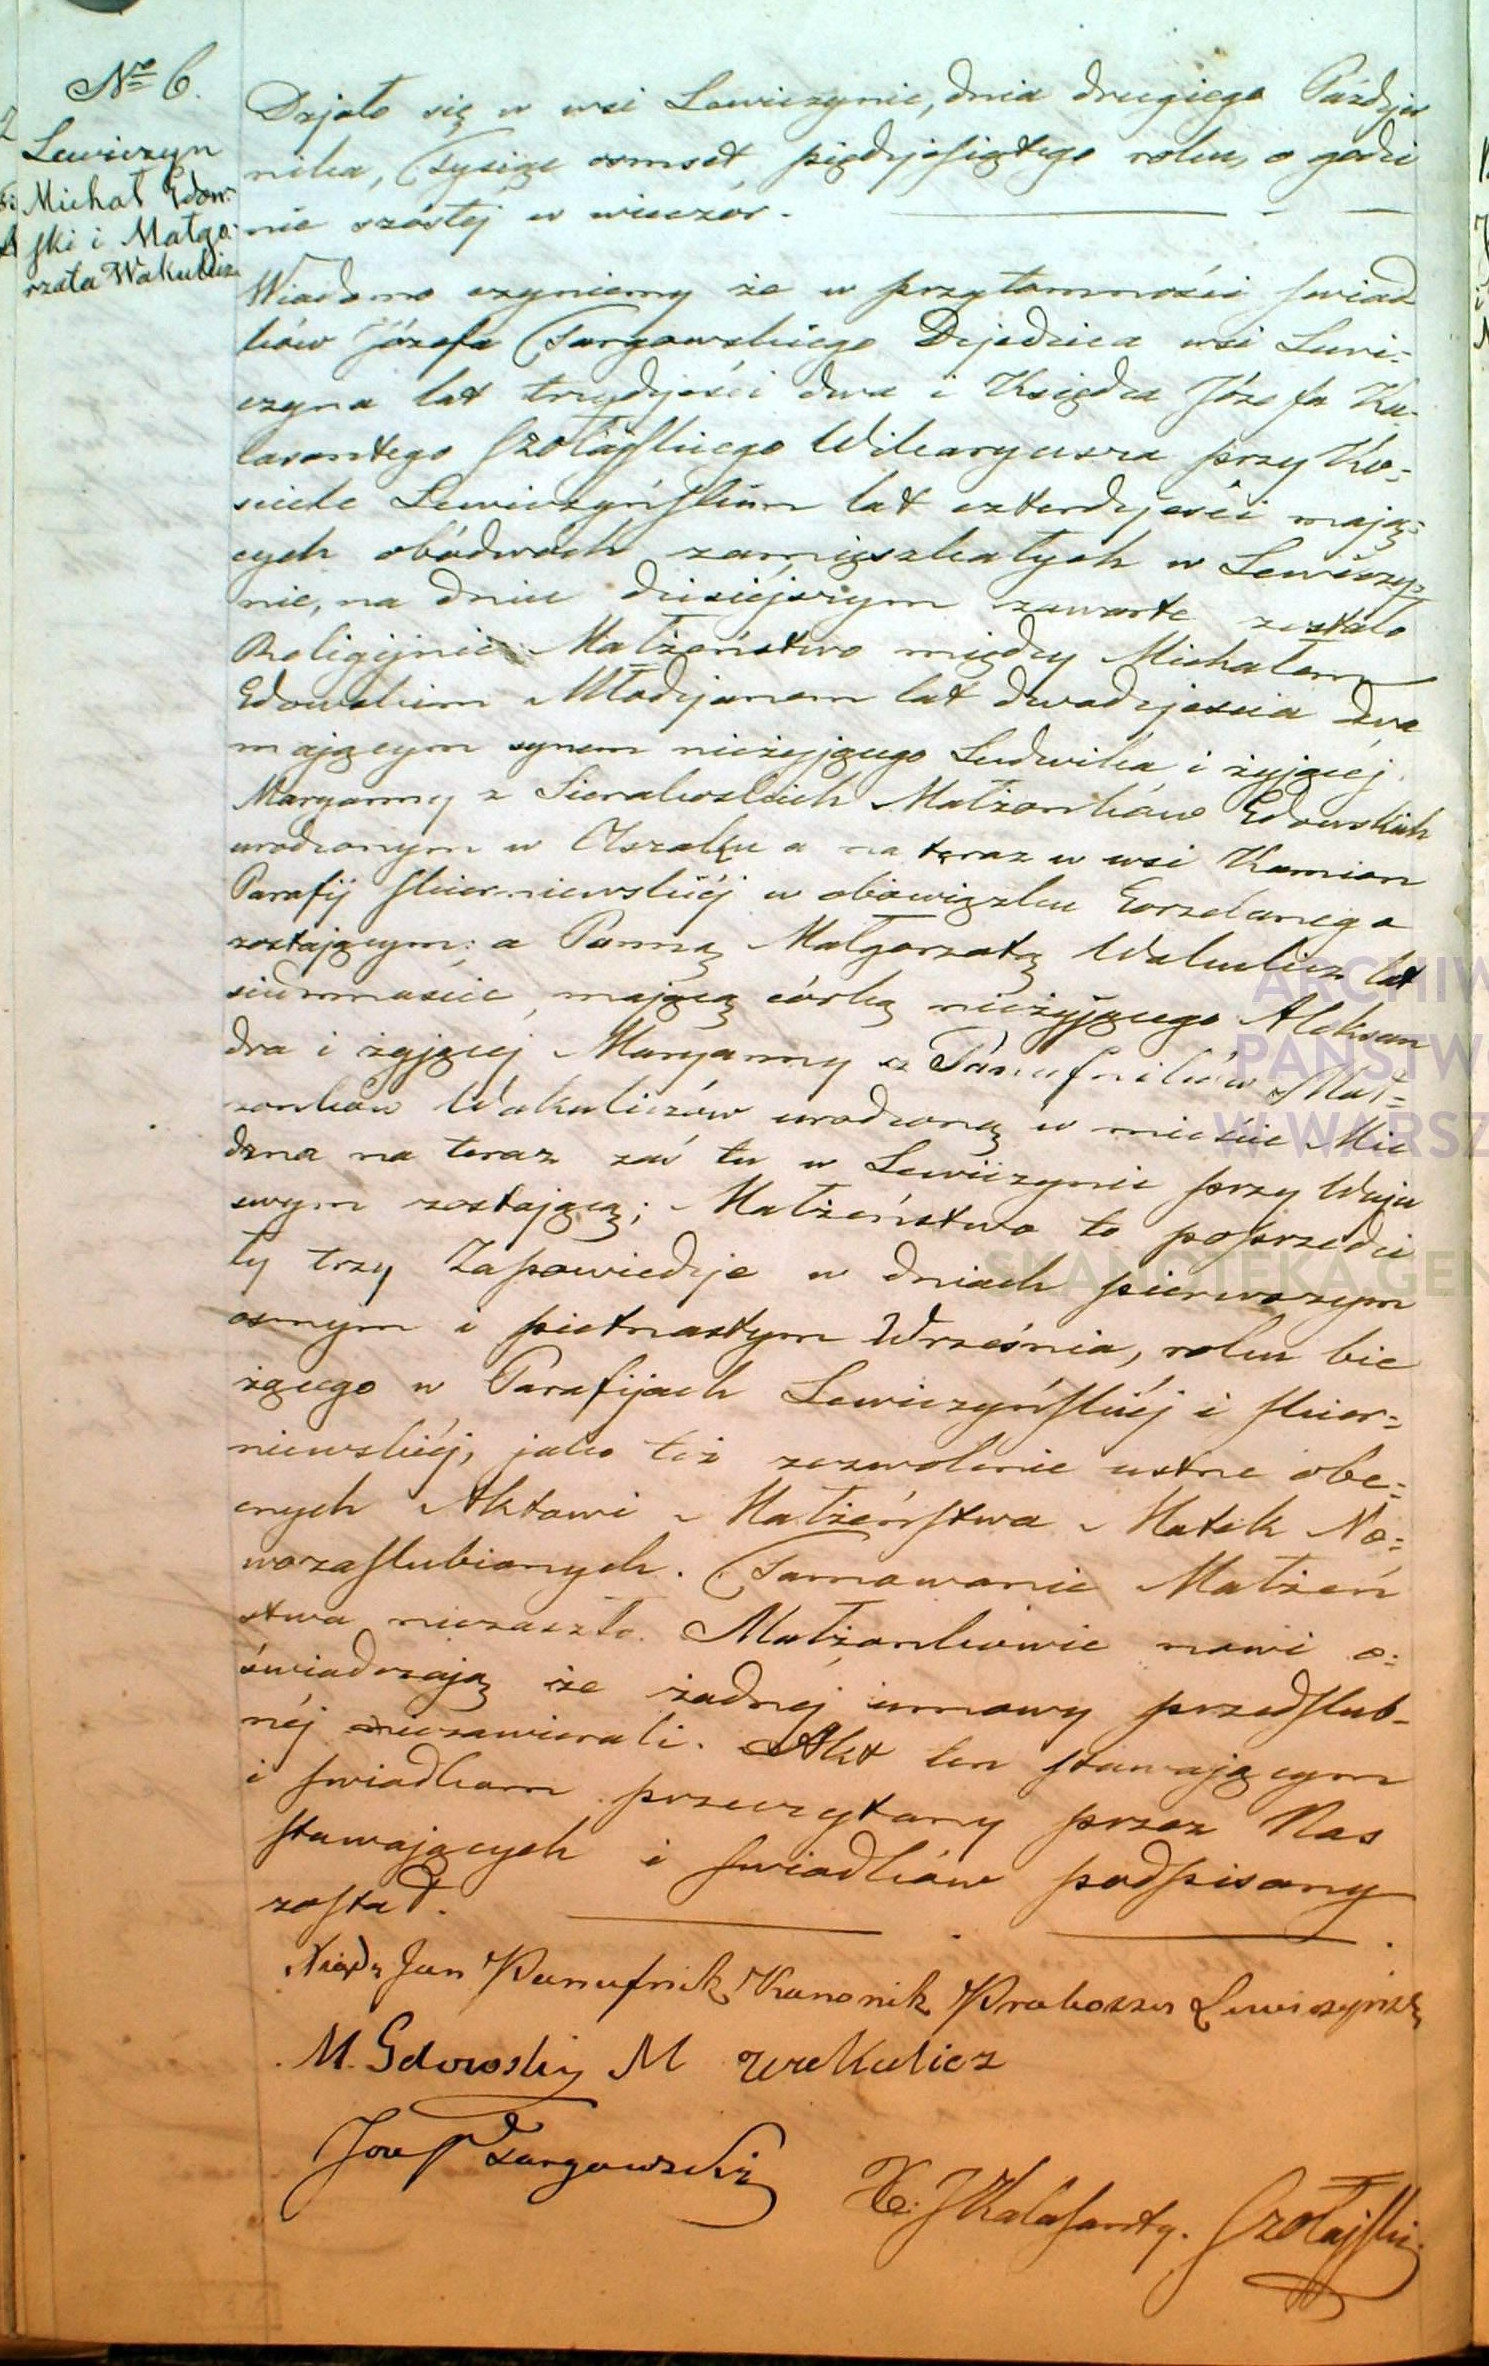 № 6.
Lewiczyn
Michał Gdow-
ski i Małgo-
rzata Wakulicz
Działo się w wsi Lewiczynie, dnia drugiego Paździer
nika, tysiąc osmset pięćdziesiątego roku, o godzi
nie szóstej w wieczór.
Wiadomo czyniemy że w przytomności świad
ków Józefa Targowskiego Dziedzica wsi Lewi=
czyna lat trzydzieści dwa i Księdza Józefa Ka-
lasantego Szołajskiego Wikaryusza przy Ko=
sciele Lewiczyńskim lat czterdzieści mają=
cych obódwóch zamięszkałych w Lewiczy=
nie, na dniu dzisiéjszym zawarte zostało
Religijnie Małżeństwo między Michałem
Gdowskim Młodzianem lat dwadzieścia dwa
mającym synem nieżyjącego Ludwika i żyjącéj
Maryanny z Sierakoskich Małżonków Gdowskich
urodzonym w a na teraz w wsi Kamion
Parafij Skierniewskiéj w obowiązku Gorzelanego
zostającym; a Panną Małgorzatą Wakulicz lat
siedmnaście, mającą córką nieżyjącego Aleksan
dra i żyjącej Maryanny z Panufników Mał=
zonków Wakuliczów urodzoną w mieście Mie
dzna na teraz zaś tu w Lewiczynie przy Wuju
swym zostającą; Małżeństwo to poprzedzi
ły trzy Zapowiedzie w dniach pierwszym
osmym i pietnastym Września, roku bie
żącego w Parafijach Lewiczyńskiéj i Skier=
niewskiéj, jako też zezwolenie ustne obe=
cnych Aktowi Małżeństwa Matek No=
wozaslubionych. Tamowanie Małżeń
stwa niezaszło. Małżonkowie nowi o=
świadczają że żadnéj umowy przedslub-
néj niezawierali. Akt ten stawającym
i swiadkom przeczytany przez Nas
stawających i swiadków podpisany
został.
Xiądz Jan Panufnik Kanonik Proboszcz Lewiczyński
M. Gdowski M Wakulicz
Józef Targowski
X. J Kalasanty. Szołajski.